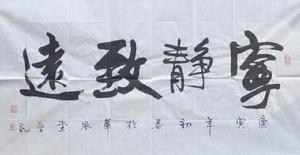 寧靜致遠
庚寅年初春於華風堂